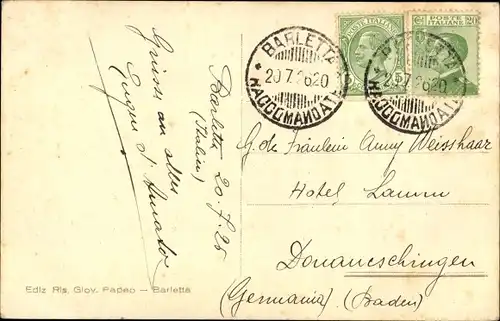 Grüsse an alle
Eugen d'Amato
Barletta 20.7.26
(Italien)
BARLETTA
20.7.26 20
RACCOMANDATE
POSTE ITALIANE
5
POSTE
ITALIANE
20
BARLETTA
20.7.26 20
RACCOMANDATE
Fräulein Anny Weisshaar
Hotel Lamm
Donaueschingen
(Germania) (Baden)
Ediz Ris. Giov. Papeo – Barletta